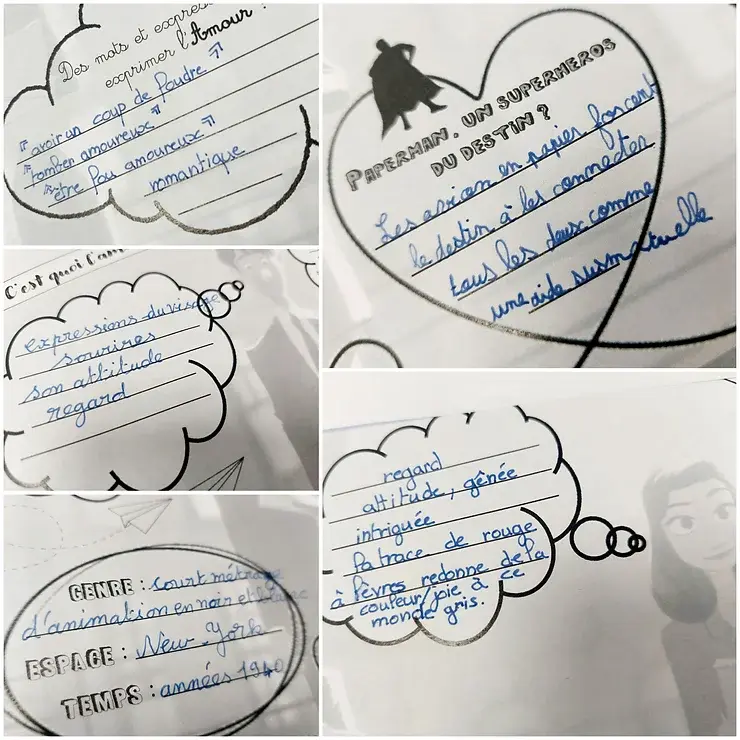 Des mots et expres
exprimer l'Amour :
"avoir un coup de foudre"
"tomber amoureux"
"être fou amoureux"
romantique
PAPERMAN, UN SUPERHEROS
DU DESTIN ?
Les avion en papier forcent
le destin à les connecter
tous les deux comme
une aide
C'est quoi l'am
expressions du visage
sourires
son attitude
regard
regard
attitude, gênée
intriguée
la trace de rouge
à lèvres redonne de la
couleur/joie à ce
monde gris.
GENRE : court métrage
d'animation en noir et blanc
ESPACE : New-York
TEMPS : années 1940